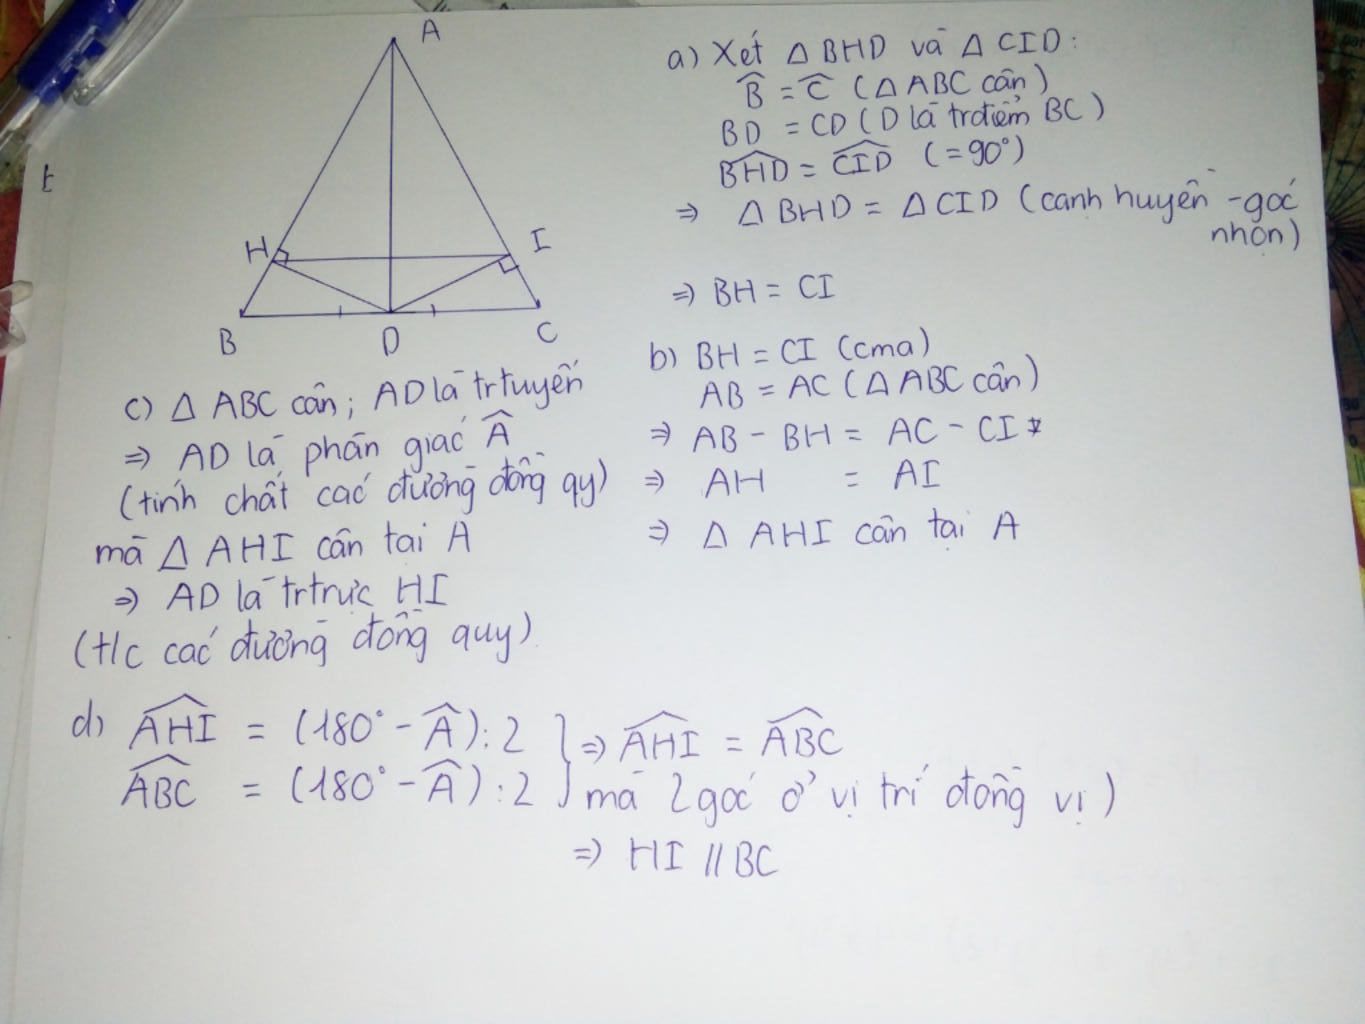 A
H
I
B
D
C
t
a) Xét △ BHD và △ CID:
B̂ = Ĉ (△ ABC cân)
BD = CD (D là trđiểm BC)
B͡HD = C͡ID (=90°)
⇒ △ BHD = △ CID (cạnh huyền - góc
nhọn)
⇒ BH = CI
b) BH = CI (cma)
AB = AC (△ ABC cân)
⇒ AB - BH = AC - CI
⇒ AH = AI
⇒ △ AHI cân tại A
c) △ ABC cân; AD là trtuyến
⇒ AD là phân giác Â
(tính chất các đường đồng qy)
mà △ AHI cân tại A
⇒ AD là trtrực HI
(t/c các đường đồng quy)
d) A͡HI = (180° - Â) : 2 } ⇒ A͡HI = A͡BC
A͡BC = (180° - Â) : 2 mà 2 góc ở vị trí đồng vị)
⇒ HI // BC